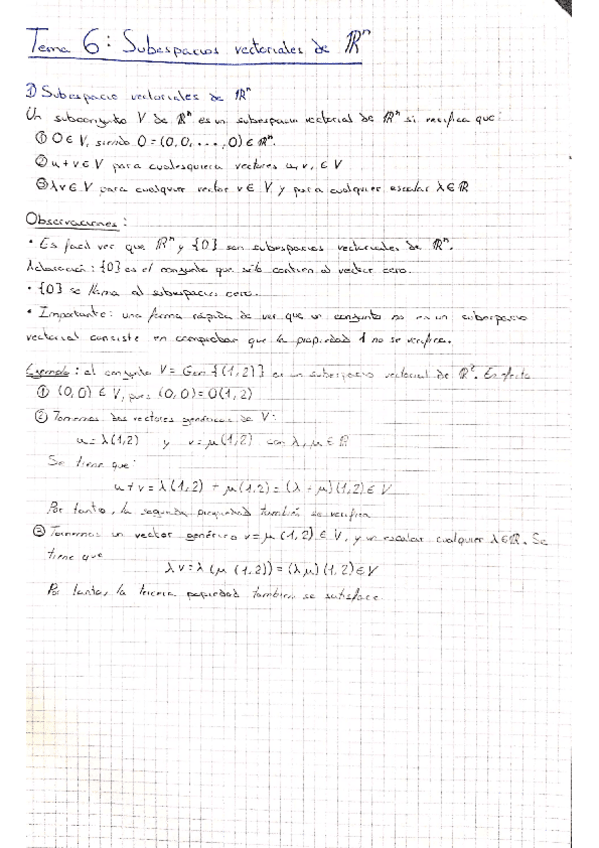 Tema 6: Subespacios vectoriales de ℝⁿ
1) Subespacio vectoriales de ℝⁿ
Un subconjunto V de ℝⁿ es un subespacio vectorial de ℝⁿ si verifica que:
① 0 ∈ V, siendo 0 = (0, 0, ..., 0) ∈ ℝⁿ.
② u + v ∈ V para cualesquiera vectores u, v, ∈ V
③ λv ∈ V para cualquier vector v ∈ V y para cualquier escalar λ ∈ ℝ
Observaciones:
• Es facil ver que ℝⁿ y {0} son subespacios vectoriales de ℝⁿ.
Aclaración: {0} es el conjunto que sólo contiene al vector cero.
• {0} se llama al subespacio cero.
• Importante: una forma rápida de ver que un conjunto no es un subespacio
vectorial consiste en comprobar que la propiedad 1 no se verifica.
Ejemplo: el conjunto V = Gen {(1, 2)} es un subespacio vectorial de ℝ². En efecto
① (0, 0) ∈ V, pues (0, 0) = 0(1, 2)
② Tomemos dos vectores genéricos de V:
u = λ(1, 2) y v = μ(1, 2) con λ, μ ∈ ℝ
Se tiene que:
u + v = λ(1, 2) + μ(1, 2) = (λ + μ)(1, 2) ∈ V
Por tanto, la segunda propiedad también se verifica
③ Tomemos un vector genérico v = μ(1, 2) ∈ V, y un escalar cualquier λ ∈ ℝ. Se
tiene que
λv = λ(μ(1, 2)) = (λμ)(1, 2) ∈ V
Por tanto, la tercera propiedad también se satisface